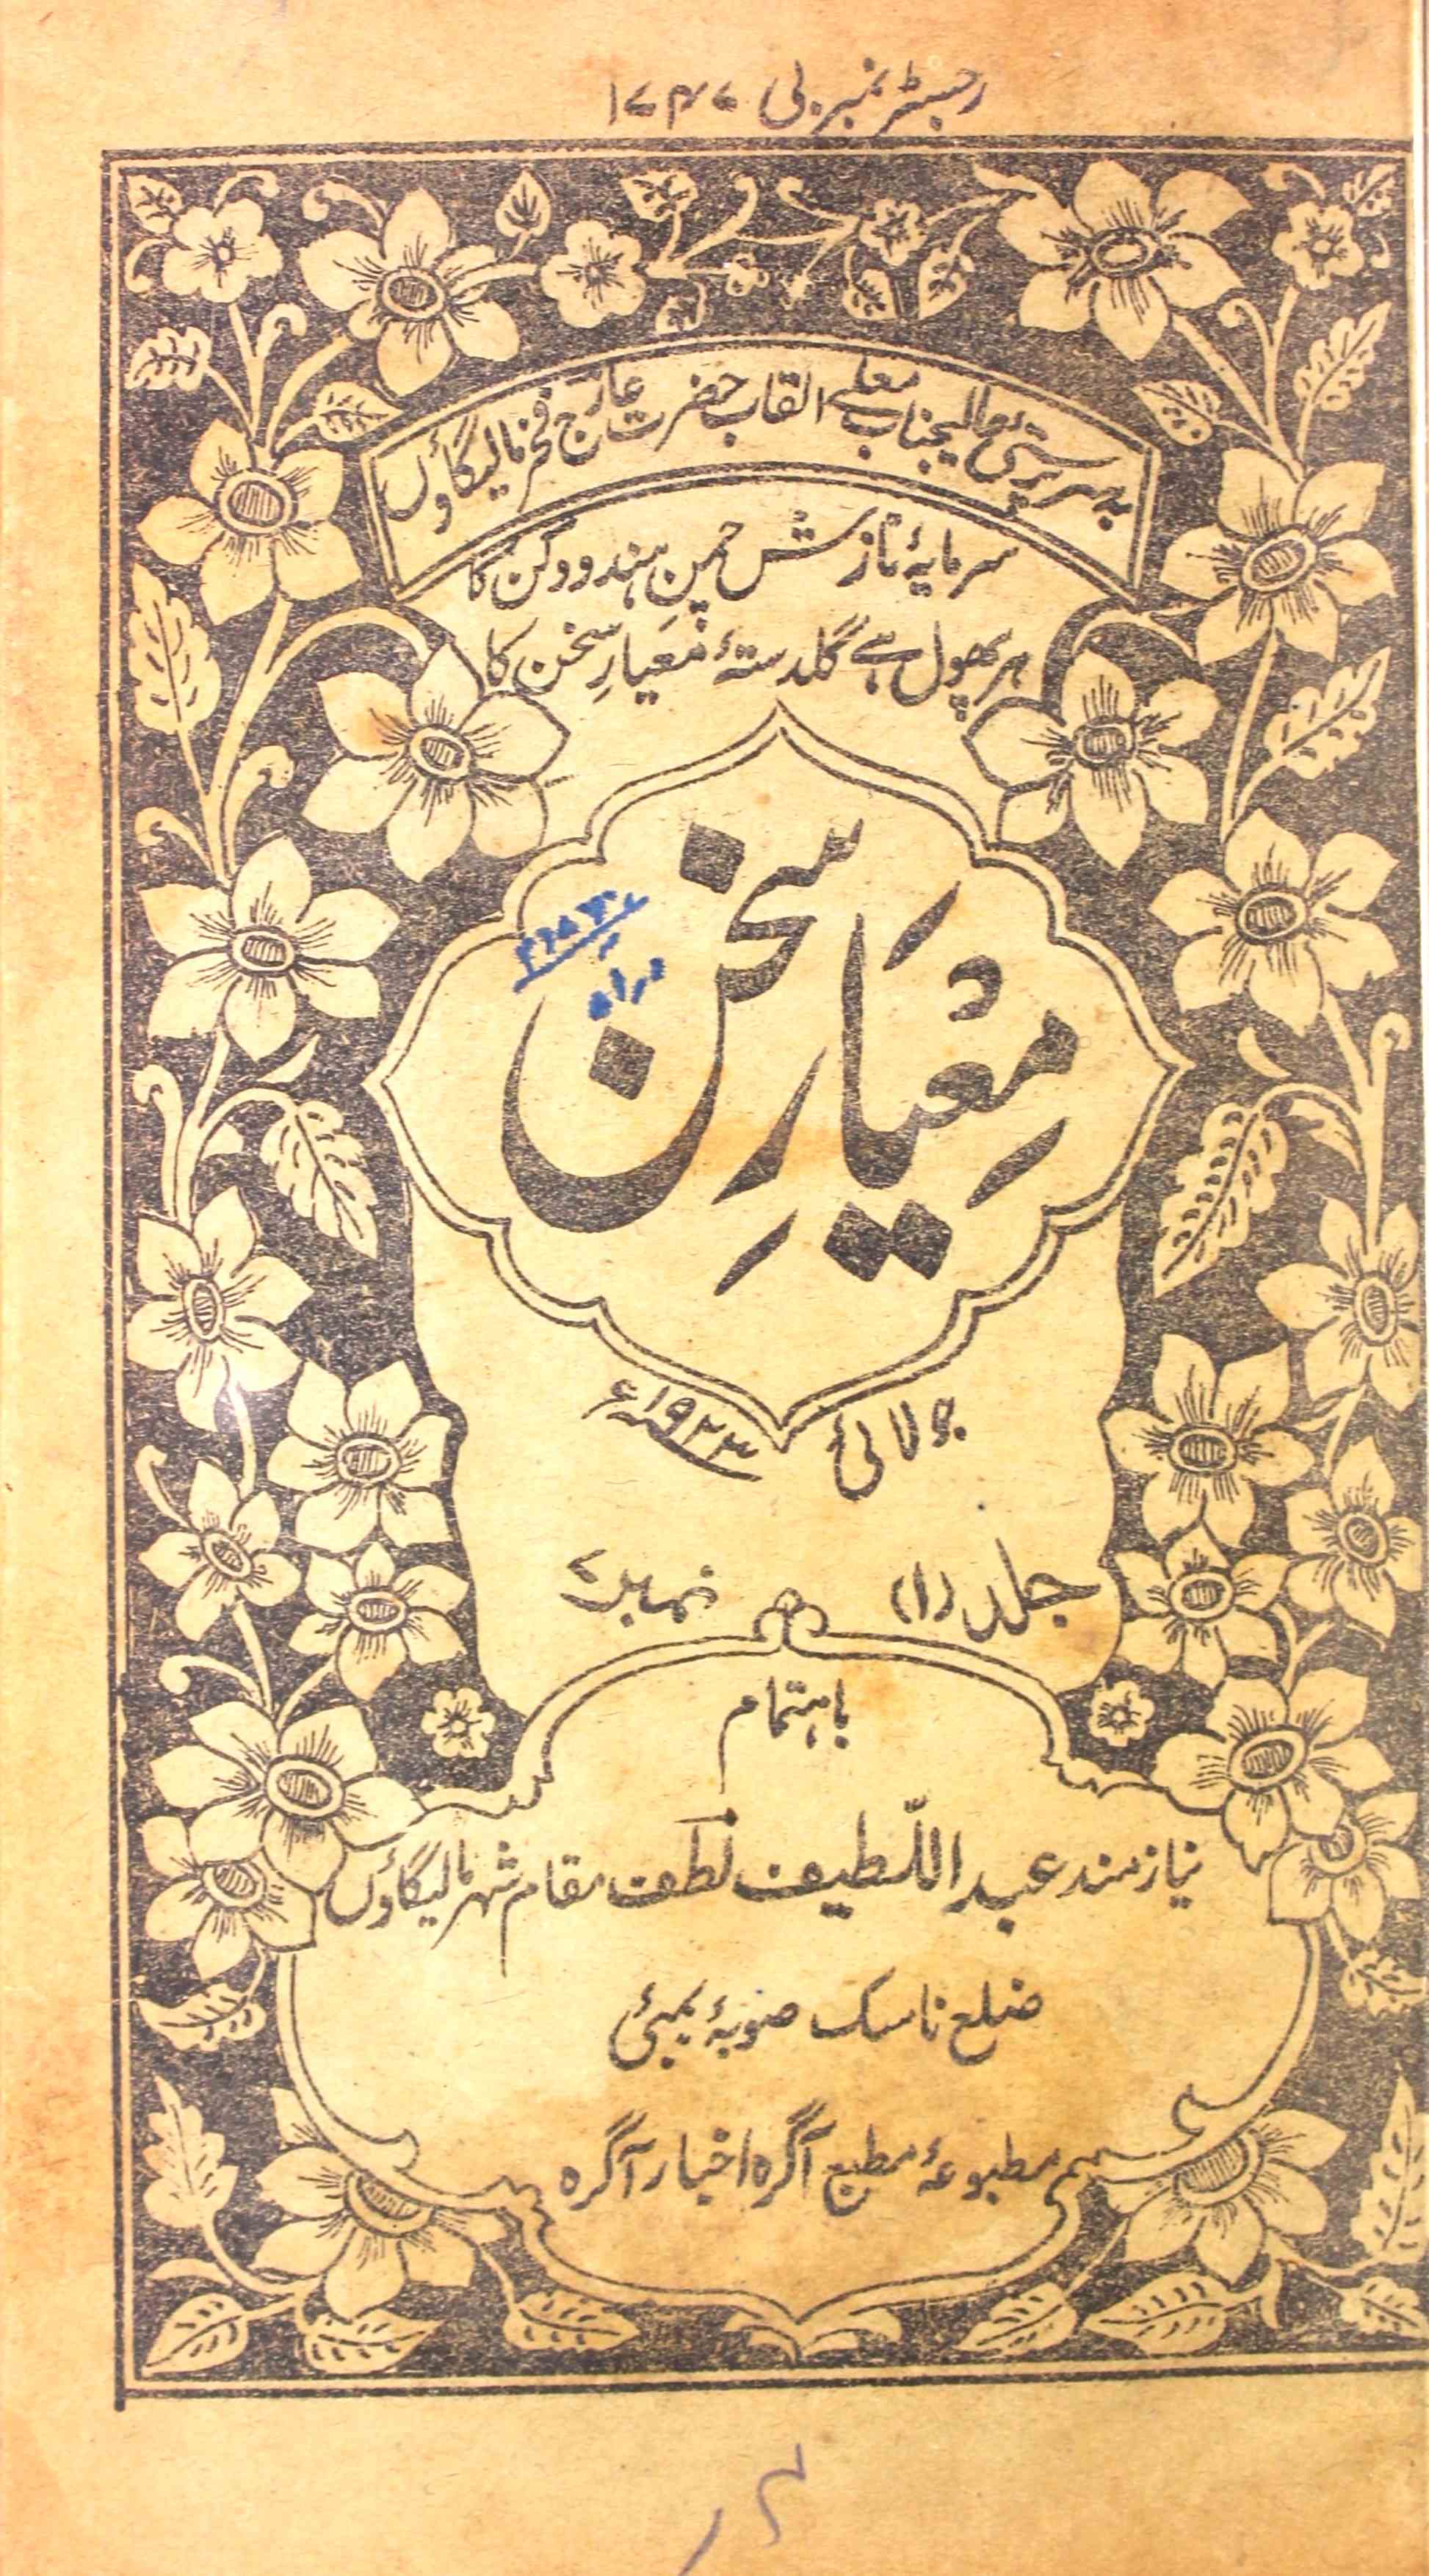 رجسٹر نمبر بی ۱۷۴۷
بہ سرپرستیٔ عالیجناب معلے القاب حضرت عارج فخر مالیگاؤں
سرمایۂ نازش چمنِ ہند و دکن کا
ہر پھول ہے گلدستۂ معیارِ سخن کا
مِعْیَارِ سخن
جولائی ۱۹۲۳ء
جلد (۱) نمبر ۷
باہتمام
نیازمند عبد اللّطیف لطف مقام شہر مالیگاؤں
ضلع ناسک صوبۂ بمبئی
مطبوعۂ مطبع آگرہ اخبار آگرہ